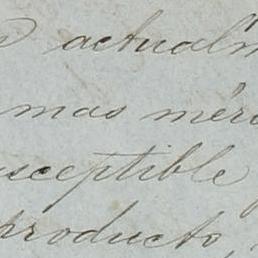 actualm
mas méri
sceptible
producto,